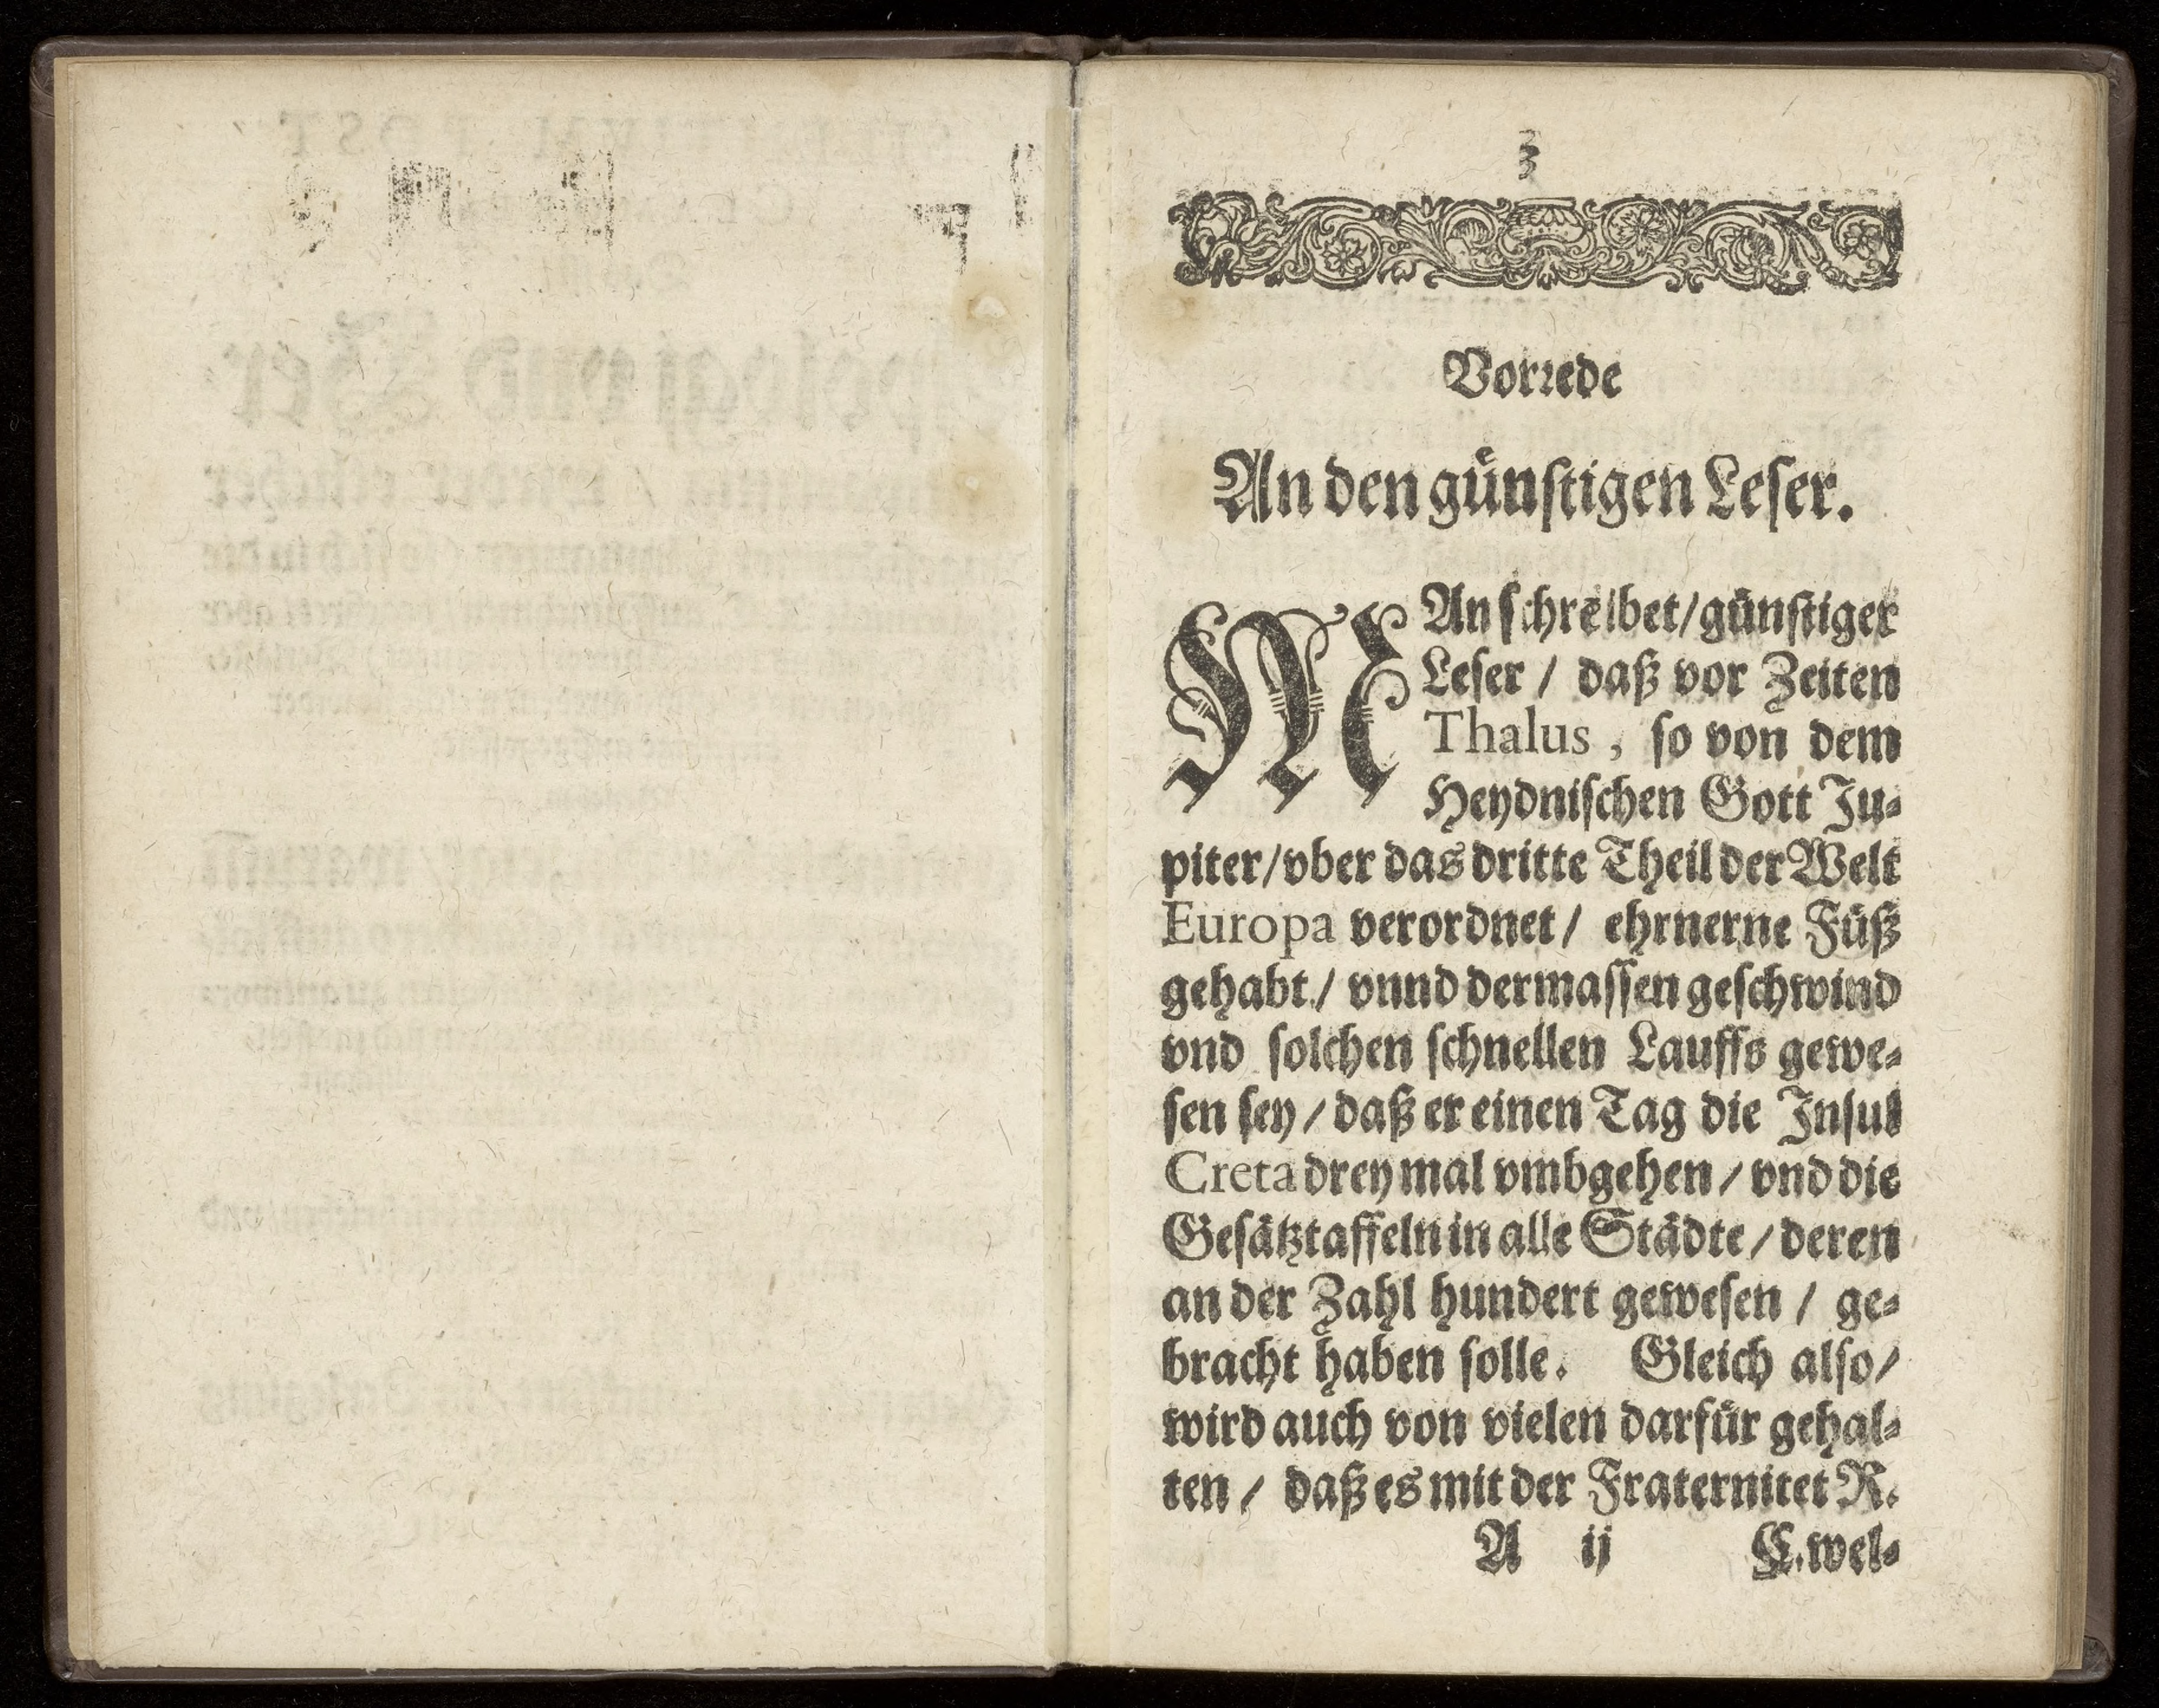 3
Vorrede
An den günstigen Leser.
MAn schreibet/günstiger
Leser / daß vor Zeiten
Thalus, so von dem
Heydnischen Gott Ju-
piter/vber das dritte Theil der Welt
Europa verordnet/ ehrnerne Füß
gehabt/ vnnd dermassen geschwind
vnd solchen schnellen Lauffs gewe-
sen sey/daß er einen Tag die Insul
Creta drey mal vmbgehen/vnd die
Gesätztaffeln in alle Städte/deren
an der Zahl hundert gewesen / ge-
bracht haben solle. Gleich also/
wird auch von vielen darfür gehal-
ten / daß es mit der Fraternitet R.
A ij C.wel-